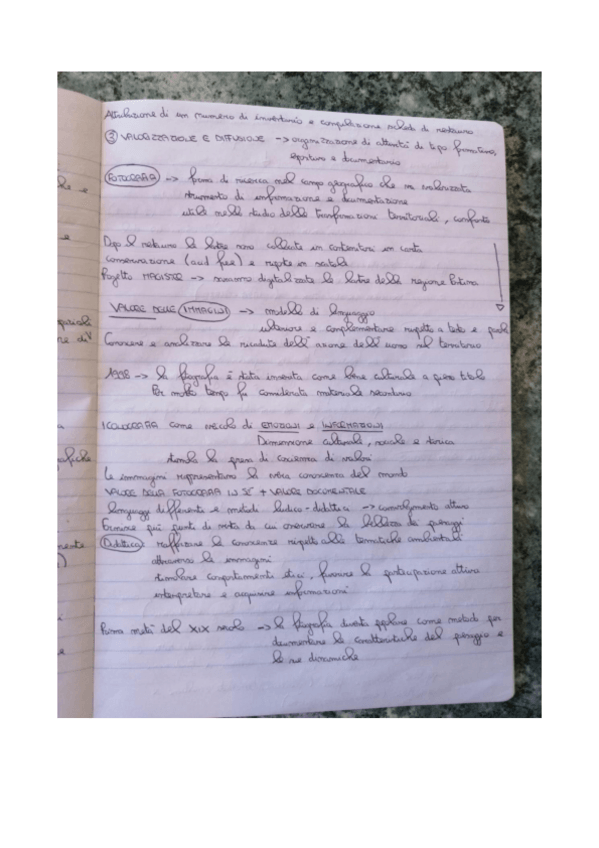 Attribuzione di un numero di inventario e compilazione schede di restauro
③ VALORIZZAZIONE E DIFFUSIONE -> organizzazione di attività di tipo formativo,
espositivo e documentario
FOTOGRAFIA -> fonte di ricerca nel campo geografico che va valorizzata
strumento di informazione e documentazione
utile nello studio delle trasformazioni territoriali, confronto
Dopo il restauro le lastre sono collocate in contenitori in carta
conservazione (acid free) e riposte in scatole
Progetto MAGISTER -> saranno digitalizzate le lastre della regione
VALORE DELLE IMMAGINI -> modello di linguaggio
ulteriore e complementare rispetto a testo e parole
Conoscere e analizzare le ricadute dell'azione dell'uomo nel territorio
-> la fotografia è stata inserita come bene culturale a pieno titolo
Per molto tempo fu considerata materiale secondario
ICONOGRAFIA come veicolo di EMOZIONI e INFORMAZIONI
Dimensione culturale, sociale e storica
stimola la presa di coscienza di valori
Le immagini rappresentano la nostra conoscenza del mondo
VALORE DELLA FOTOGRAFIA IN SÉ + VALORE DOCUMENTALE
linguaggi differenti e metodo ludico-didattico -> coinvolgimento attivo
Fornire più punti di vista da cui osservare la bellezza dei paesaggi
Didattica: rafforzare le conoscenze rispetto alle tematiche ambientali
attraverso le immagini
stimolare comportamenti etici, favorire la partecipazione attiva
interpretare e acquisire informazioni
Prima metà del XIX secolo -> la fotografia diventa popolare come metodo per
documentare le caratteristiche del paesaggio e
le sue dinamiche